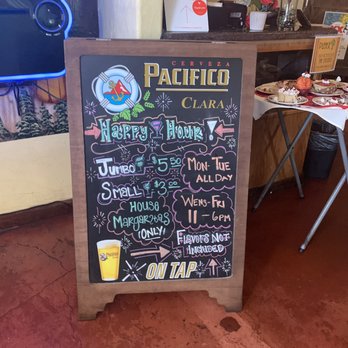 CERVEZA
PACIFICO
CLARA
Happy Hour!
Jumbo $5.00
Small $3.00
House
Margaritas
(only)
Mon-Tue
All Day
Wens-Fri
11-6pm
Flavors Not
Included
ON TAP